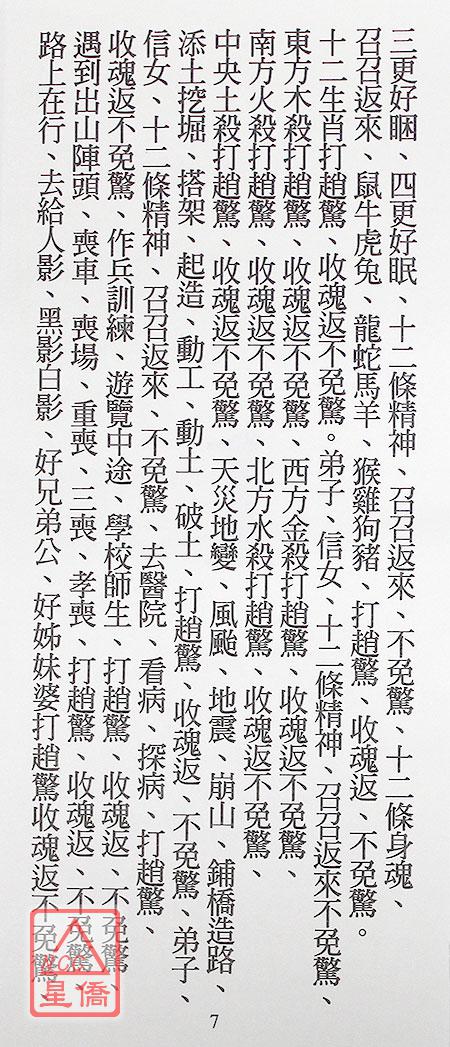 三更好睏、四更好眠、十二條精神、召召返來、不免驚、十二條身魂、
召召返來、鼠牛虎兔、龍蛇馬羊、猴雞狗豬、打趙驚、收魂返、不免驚。
十二生肖打趙驚、收魂返不免驚。弟子、信女、十二條精神、召召返來不免驚、
東方木殺打趙驚、收魂返不免驚、西方金殺打趙驚、收魂返不免驚、
南方火殺打趙驚、收魂返不免驚、北方水殺打趙驚、收魂返不免驚、
中央土殺打趙驚、收魂返不免驚、天災地變、風颱、地震、崩山、鋪橋造路、
添土挖堀、搭架、起造、動工、動土、破土、打趙驚、收魂返、不免驚、弟子、
信女、十二條精神、召召返來、不免驚、去醫院、看病、探病、打趙驚、
收魂返不免驚、作兵訓練、遊覽中途、學校師生、打趙驚、收魂返、不免驚、
遇到出山陣頭、喪車、喪場、重喪、三喪、孝喪、打趙驚、收魂返、不免驚、
路上在行、去給人影、黑影白影、好兄弟公、好姊妹婆打趙驚收魂返不免驚、
NCC
星僑
7